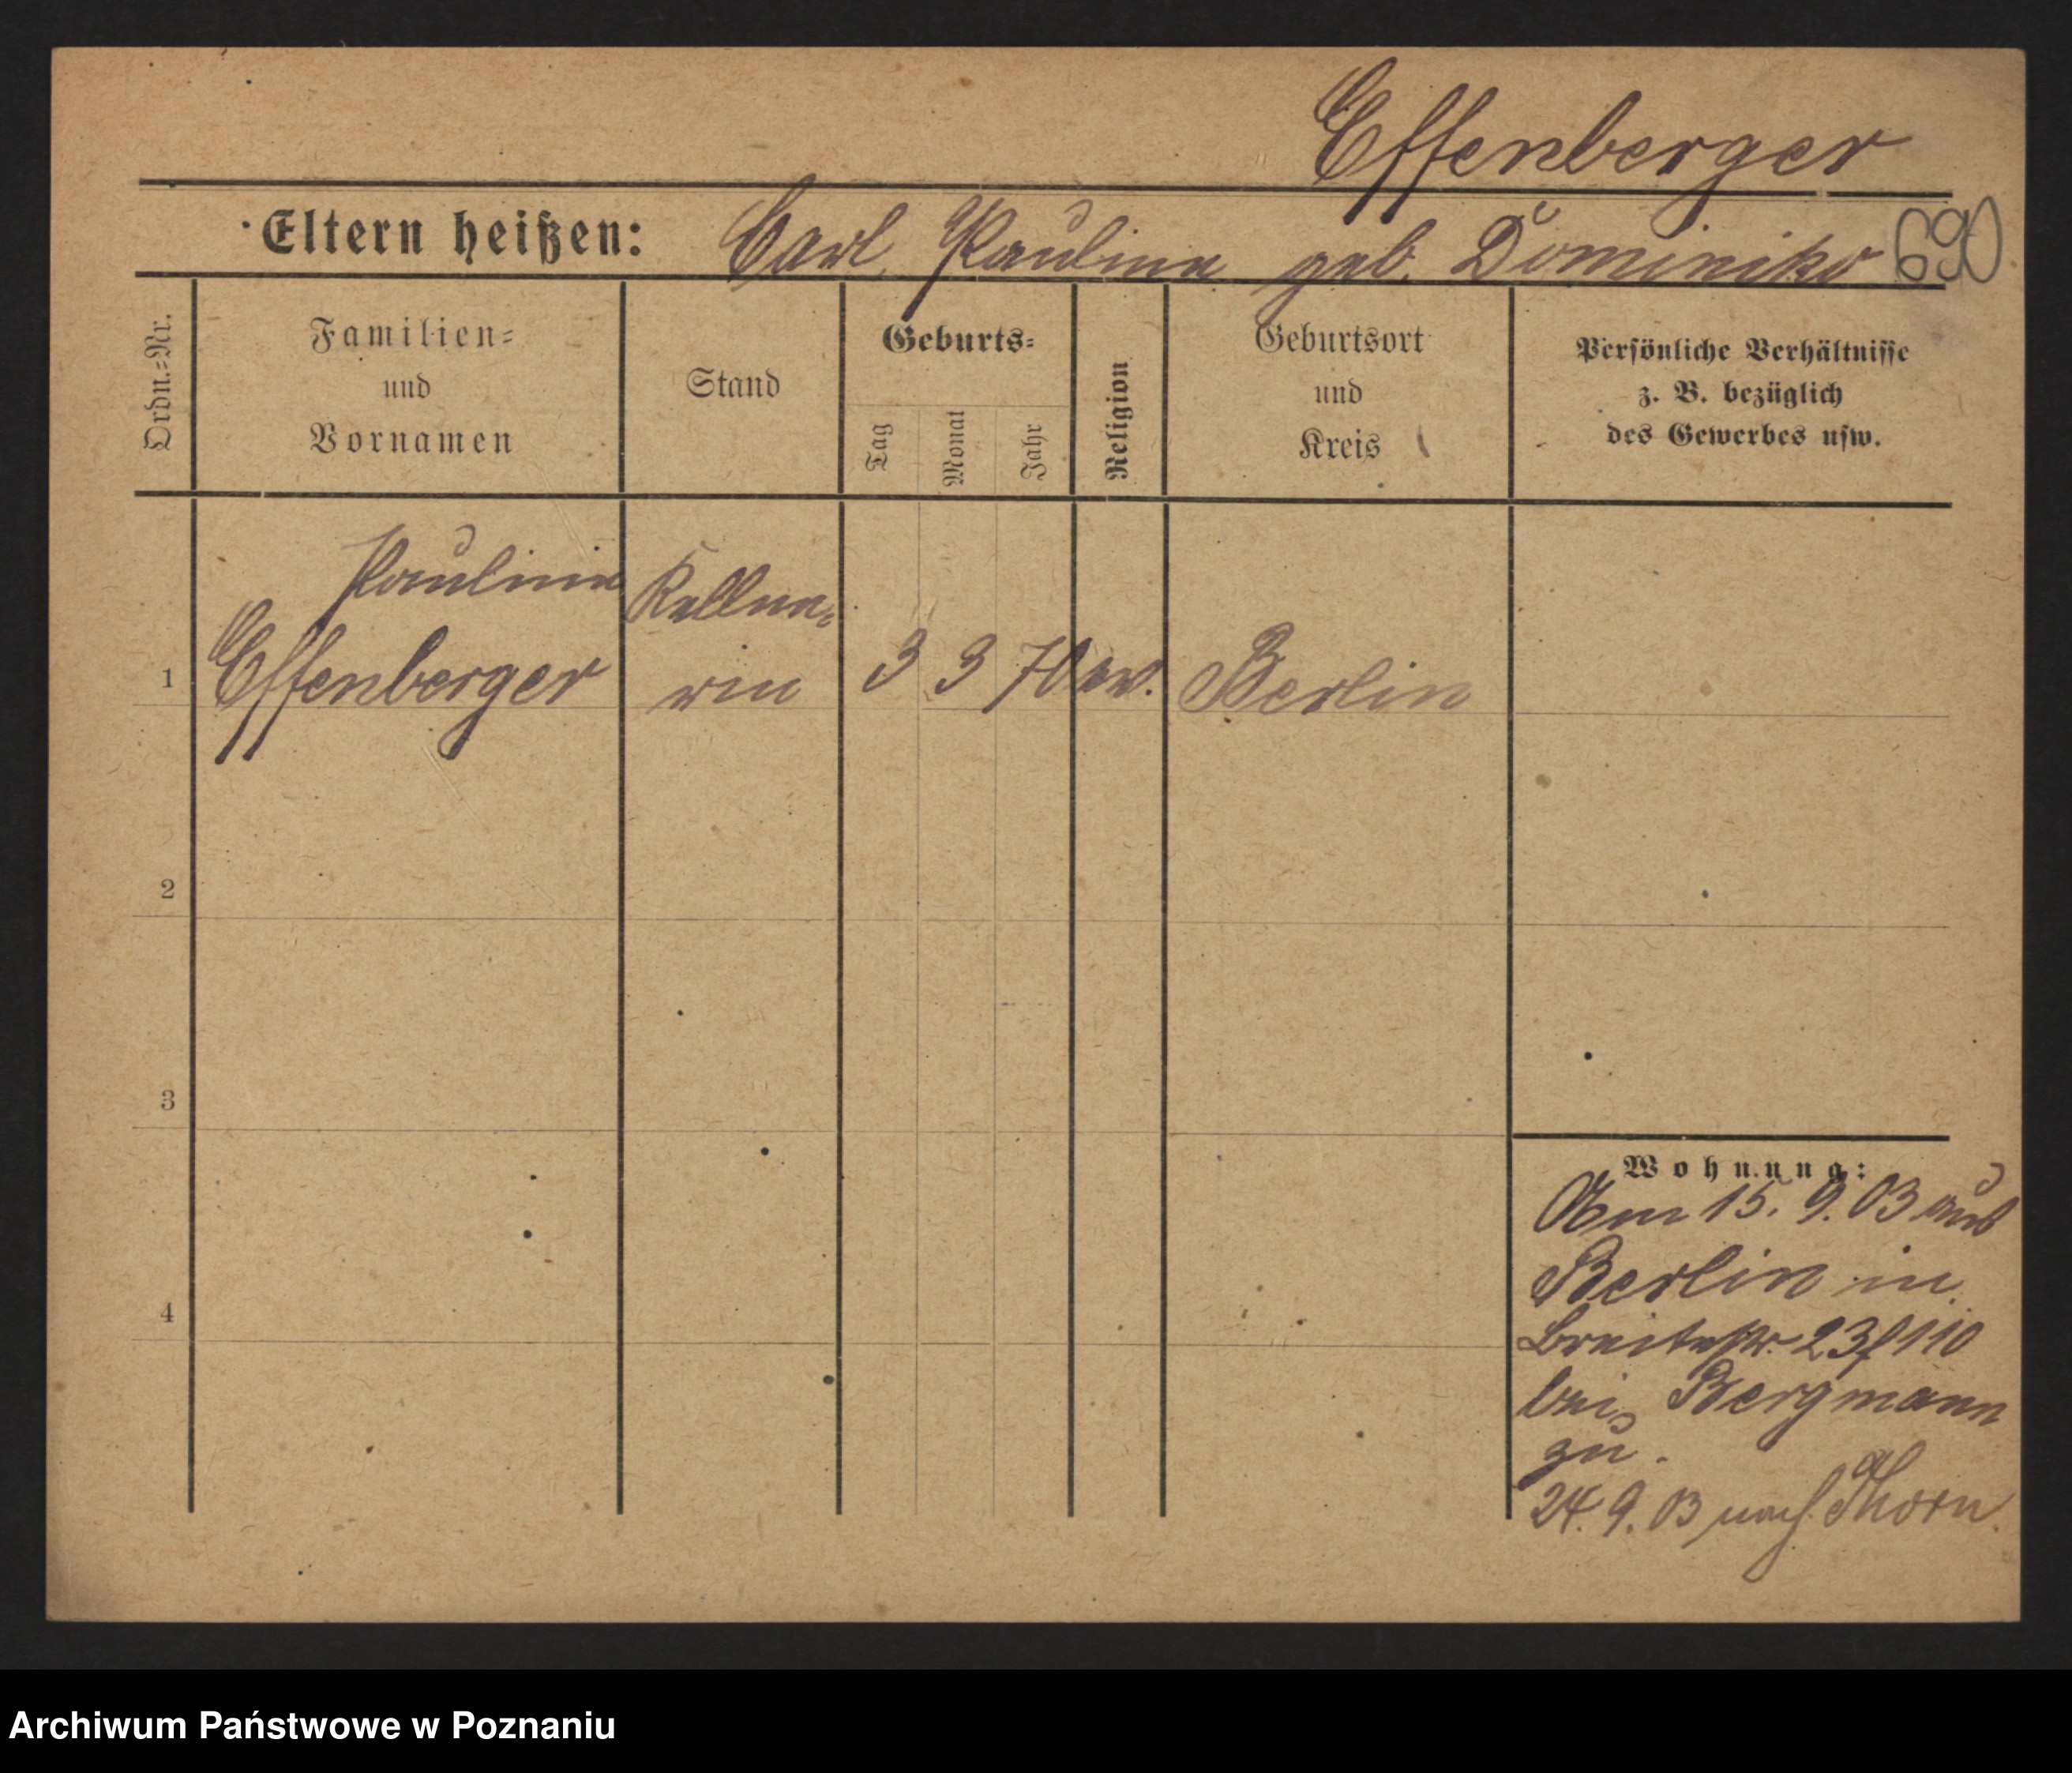 Effenberger
Eltern heißen: Carl, Pauline geb. Dominiko 690
Ordn.=Nr.
Familien=
und
Vornamen
Stand
Geburts=
Tag
Monat
Jahr
Religion
Geburtsort
und
Kreis
Persönliche Verhältnisse
z. B. bezüglich
des Gewerbes usw.
Pauline Kellne=
1 Effenberger rin 3 3 70 ev. Berlin
2
3
4
Wohnung:
Am 15. 9. 03 aus
Berlin in
Breitestr. 23 110
bei Bergmann
zu.
24. 9. 03 nach Thorn.
Archiwum Państwowe w Poznaniu